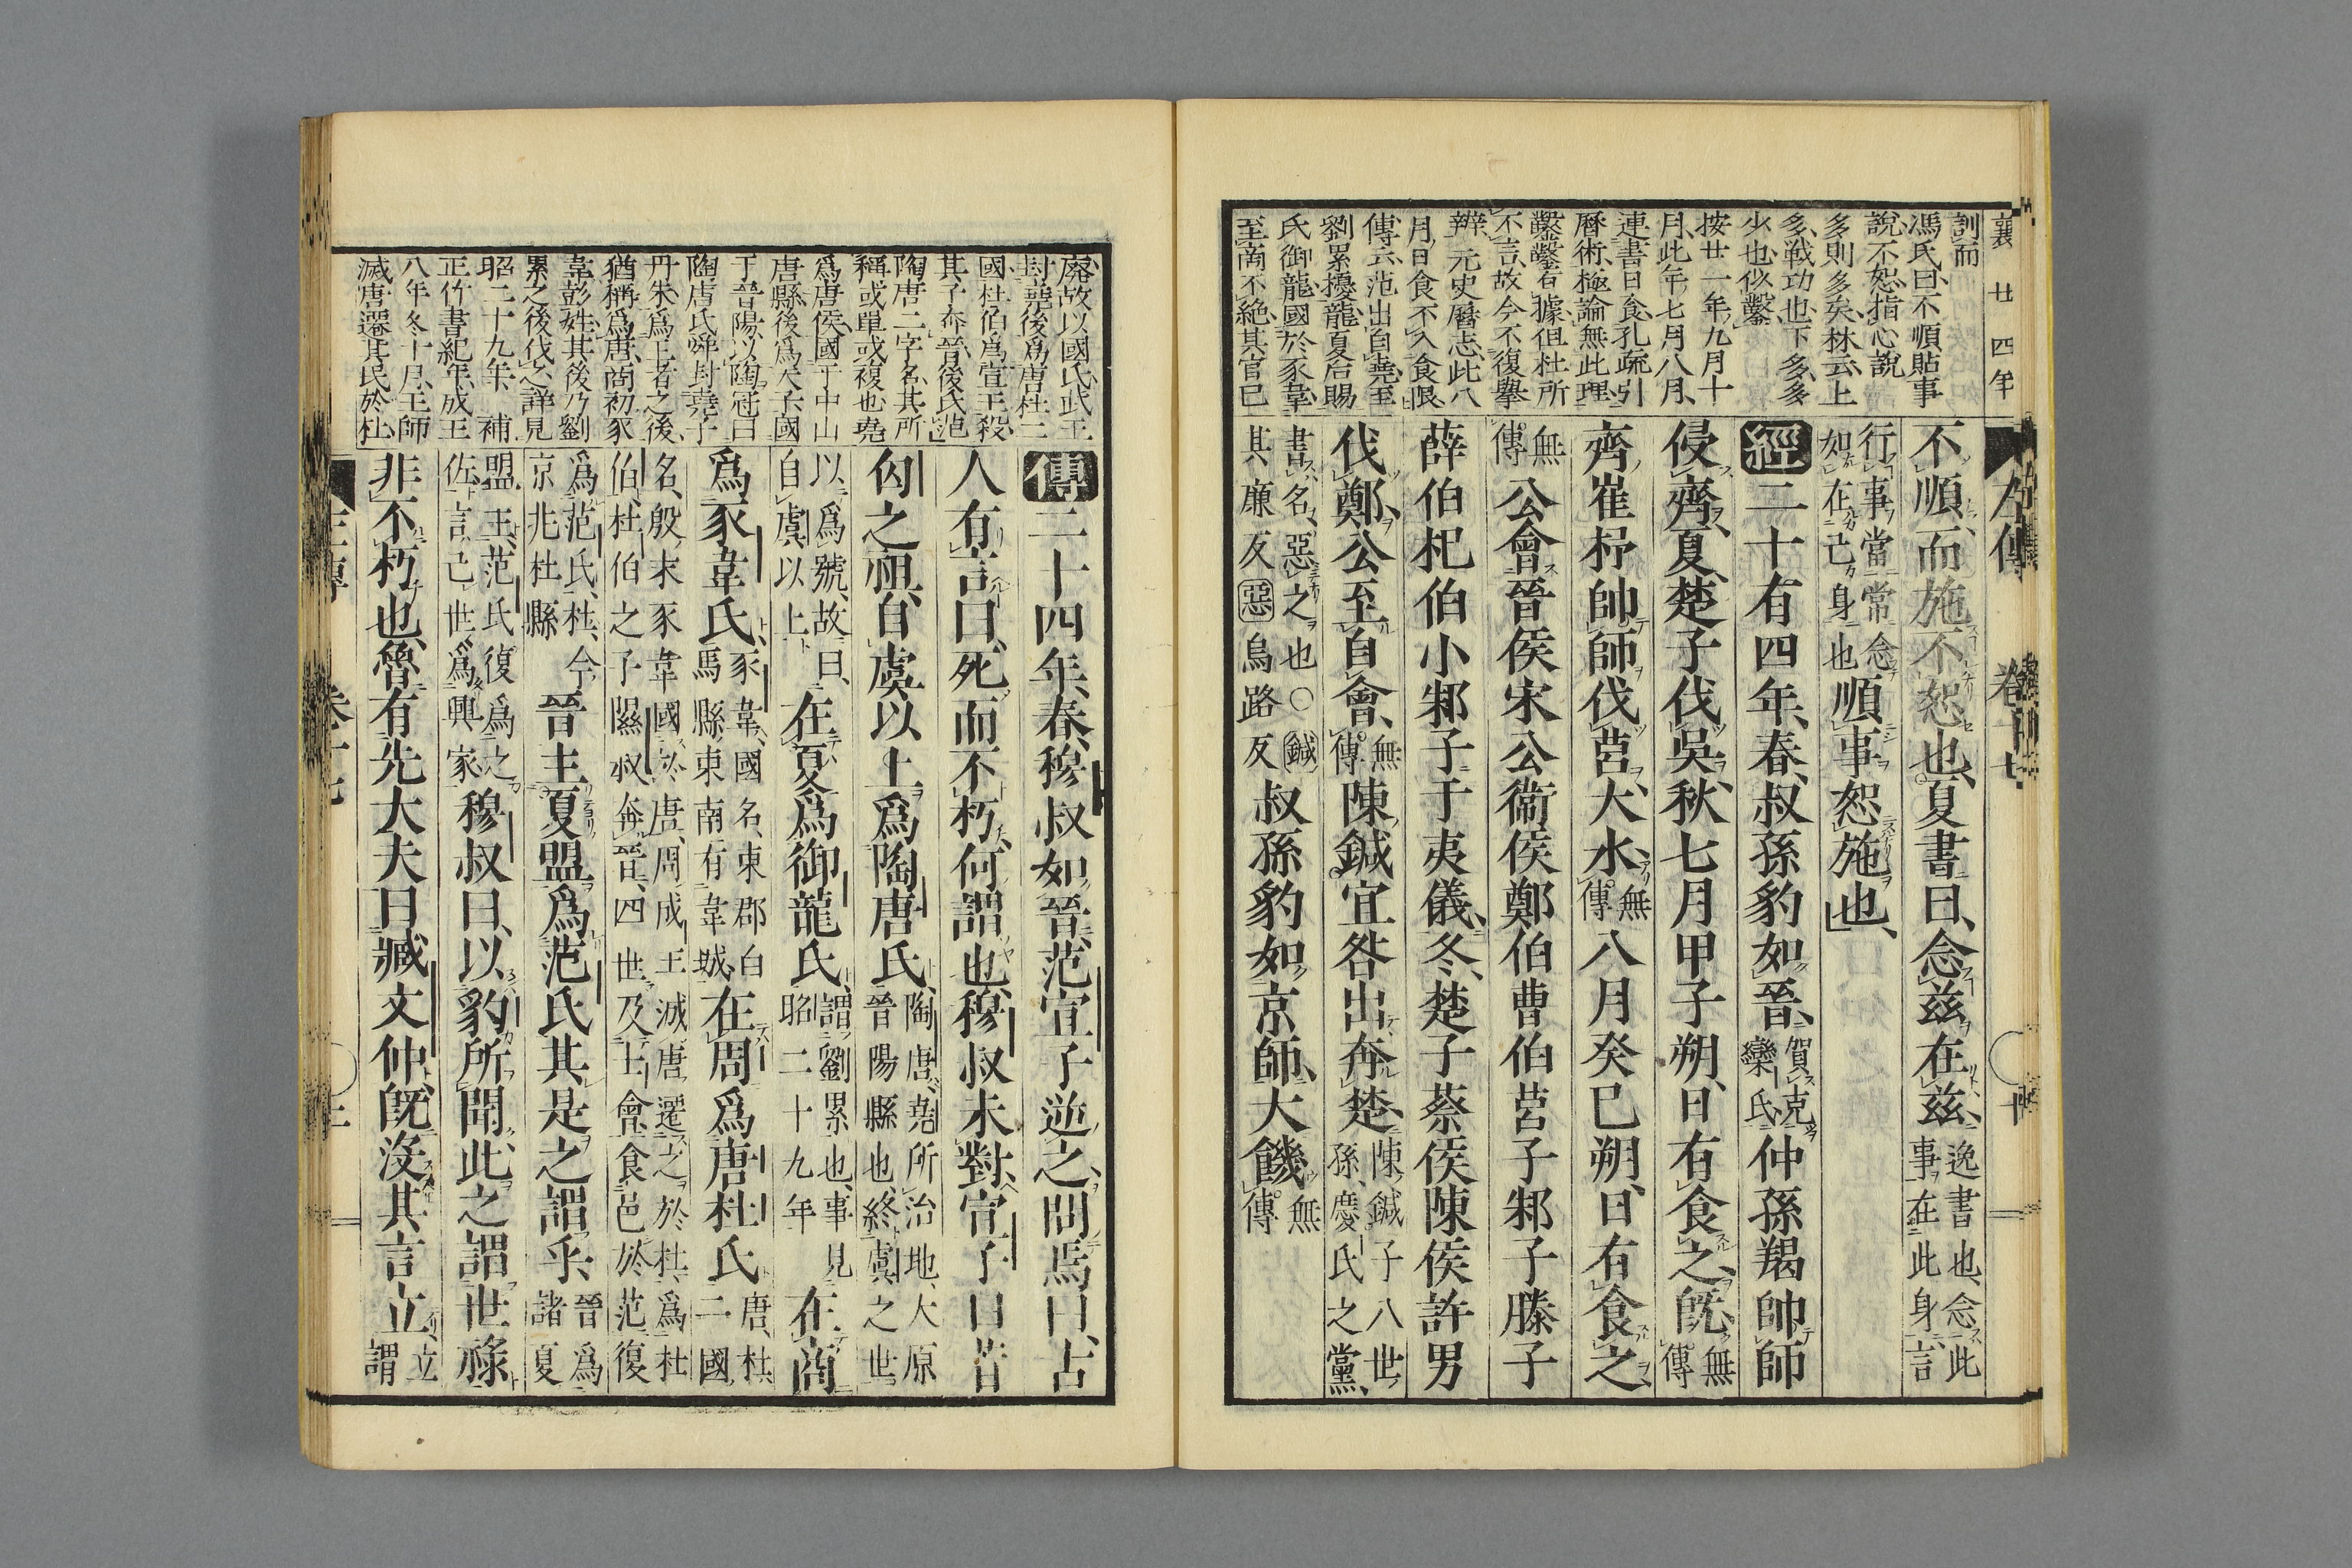 襄 廿四年
訓而
馮氏曰不順貼事
說不恕指心說
多則多矣林云上
多戰功也下多多
少也似鑿
按廿一年九月十
月此年七月八月
連書日食孔疏引
曆術極論無此理
鑿鑿有據但杜所
不言故今不復擧
辨 元史曆志此八
月日食不入食限
傳云范出自堯至
劉累擾龍夏后賜
氏御龍國於豕韋
至商不絕其官巳
左傳 卷十七 十
不順而施不恕也夏書曰念兹在兹
逸書也念此
事在此身言
行事當常念
如在己身也
順事恕施也
經二十有四年春叔孫豹如晉
賀克
欒氏
仲孫羯帥師
侵齊夏楚子伐吳秋七月甲子朔日有食之旣
無
傳
齊崔杼帥師伐莒大水
無
傳
八月癸巳朔日有食之
無
傳
公會晉侯宋公衞侯鄭伯曹伯莒子邾子滕子
薛伯杞伯小邾子于夷儀冬楚子蔡侯陳侯許男
伐鄭公至自會
無
傳
陳鍼宜咎出奔楚
陳鍼子八世
孫慶氏之黨
書名惡之也○鍼
其廉反惡烏路反
叔孫豹如京師大饑
無
傳
處故以國氏武王
封堯後爲唐杜二
國杜伯爲宣王殺
其子奔晉後氏范
陶唐二字名其所
稱或單或複也堯
爲唐侯國于中山
唐縣後爲天子國
于晉陽以陶冠曰
陶唐氏舜封堯子
丹朱爲王者之後
猶稱爲唐商初豕
韋彭姓其後乃劉
累之後伐之詳見
昭二十九年 補
正竹書紀年成王
八年冬十月王師
滅唐遷其民於杜
傳二十四年春穆叔如晉范宣子逆之問焉曰古
人有言曰死而不朽何謂也穆叔未對宣子曰昔
匄之祖自虞以上爲陶唐氏
陶唐堯所治地大原
晉陽縣也終虞之世
以爲號故曰
自虞以上
在夏爲御龍氏
謂劉累也事見
昭二十九年
在商
爲豕韋氏
豕韋國名東郡白
馬縣東南有韋城
在周爲唐杜氏
唐杜
二國
名殷末豕韋國於唐周成王滅唐遷之於杜爲杜
伯杜伯之子隰叔奔晉四世及士會食邑於范復
爲范氏杜今
京兆杜縣
晉主夏盟爲范氏其是之謂乎
晉爲
諸夏
盟主范氏復爲之
佐言己世爲興家
穆叔曰以豹所聞此之謂世祿
非不朽也魯有先大夫曰臧文仲旣沒其言立
立
謂